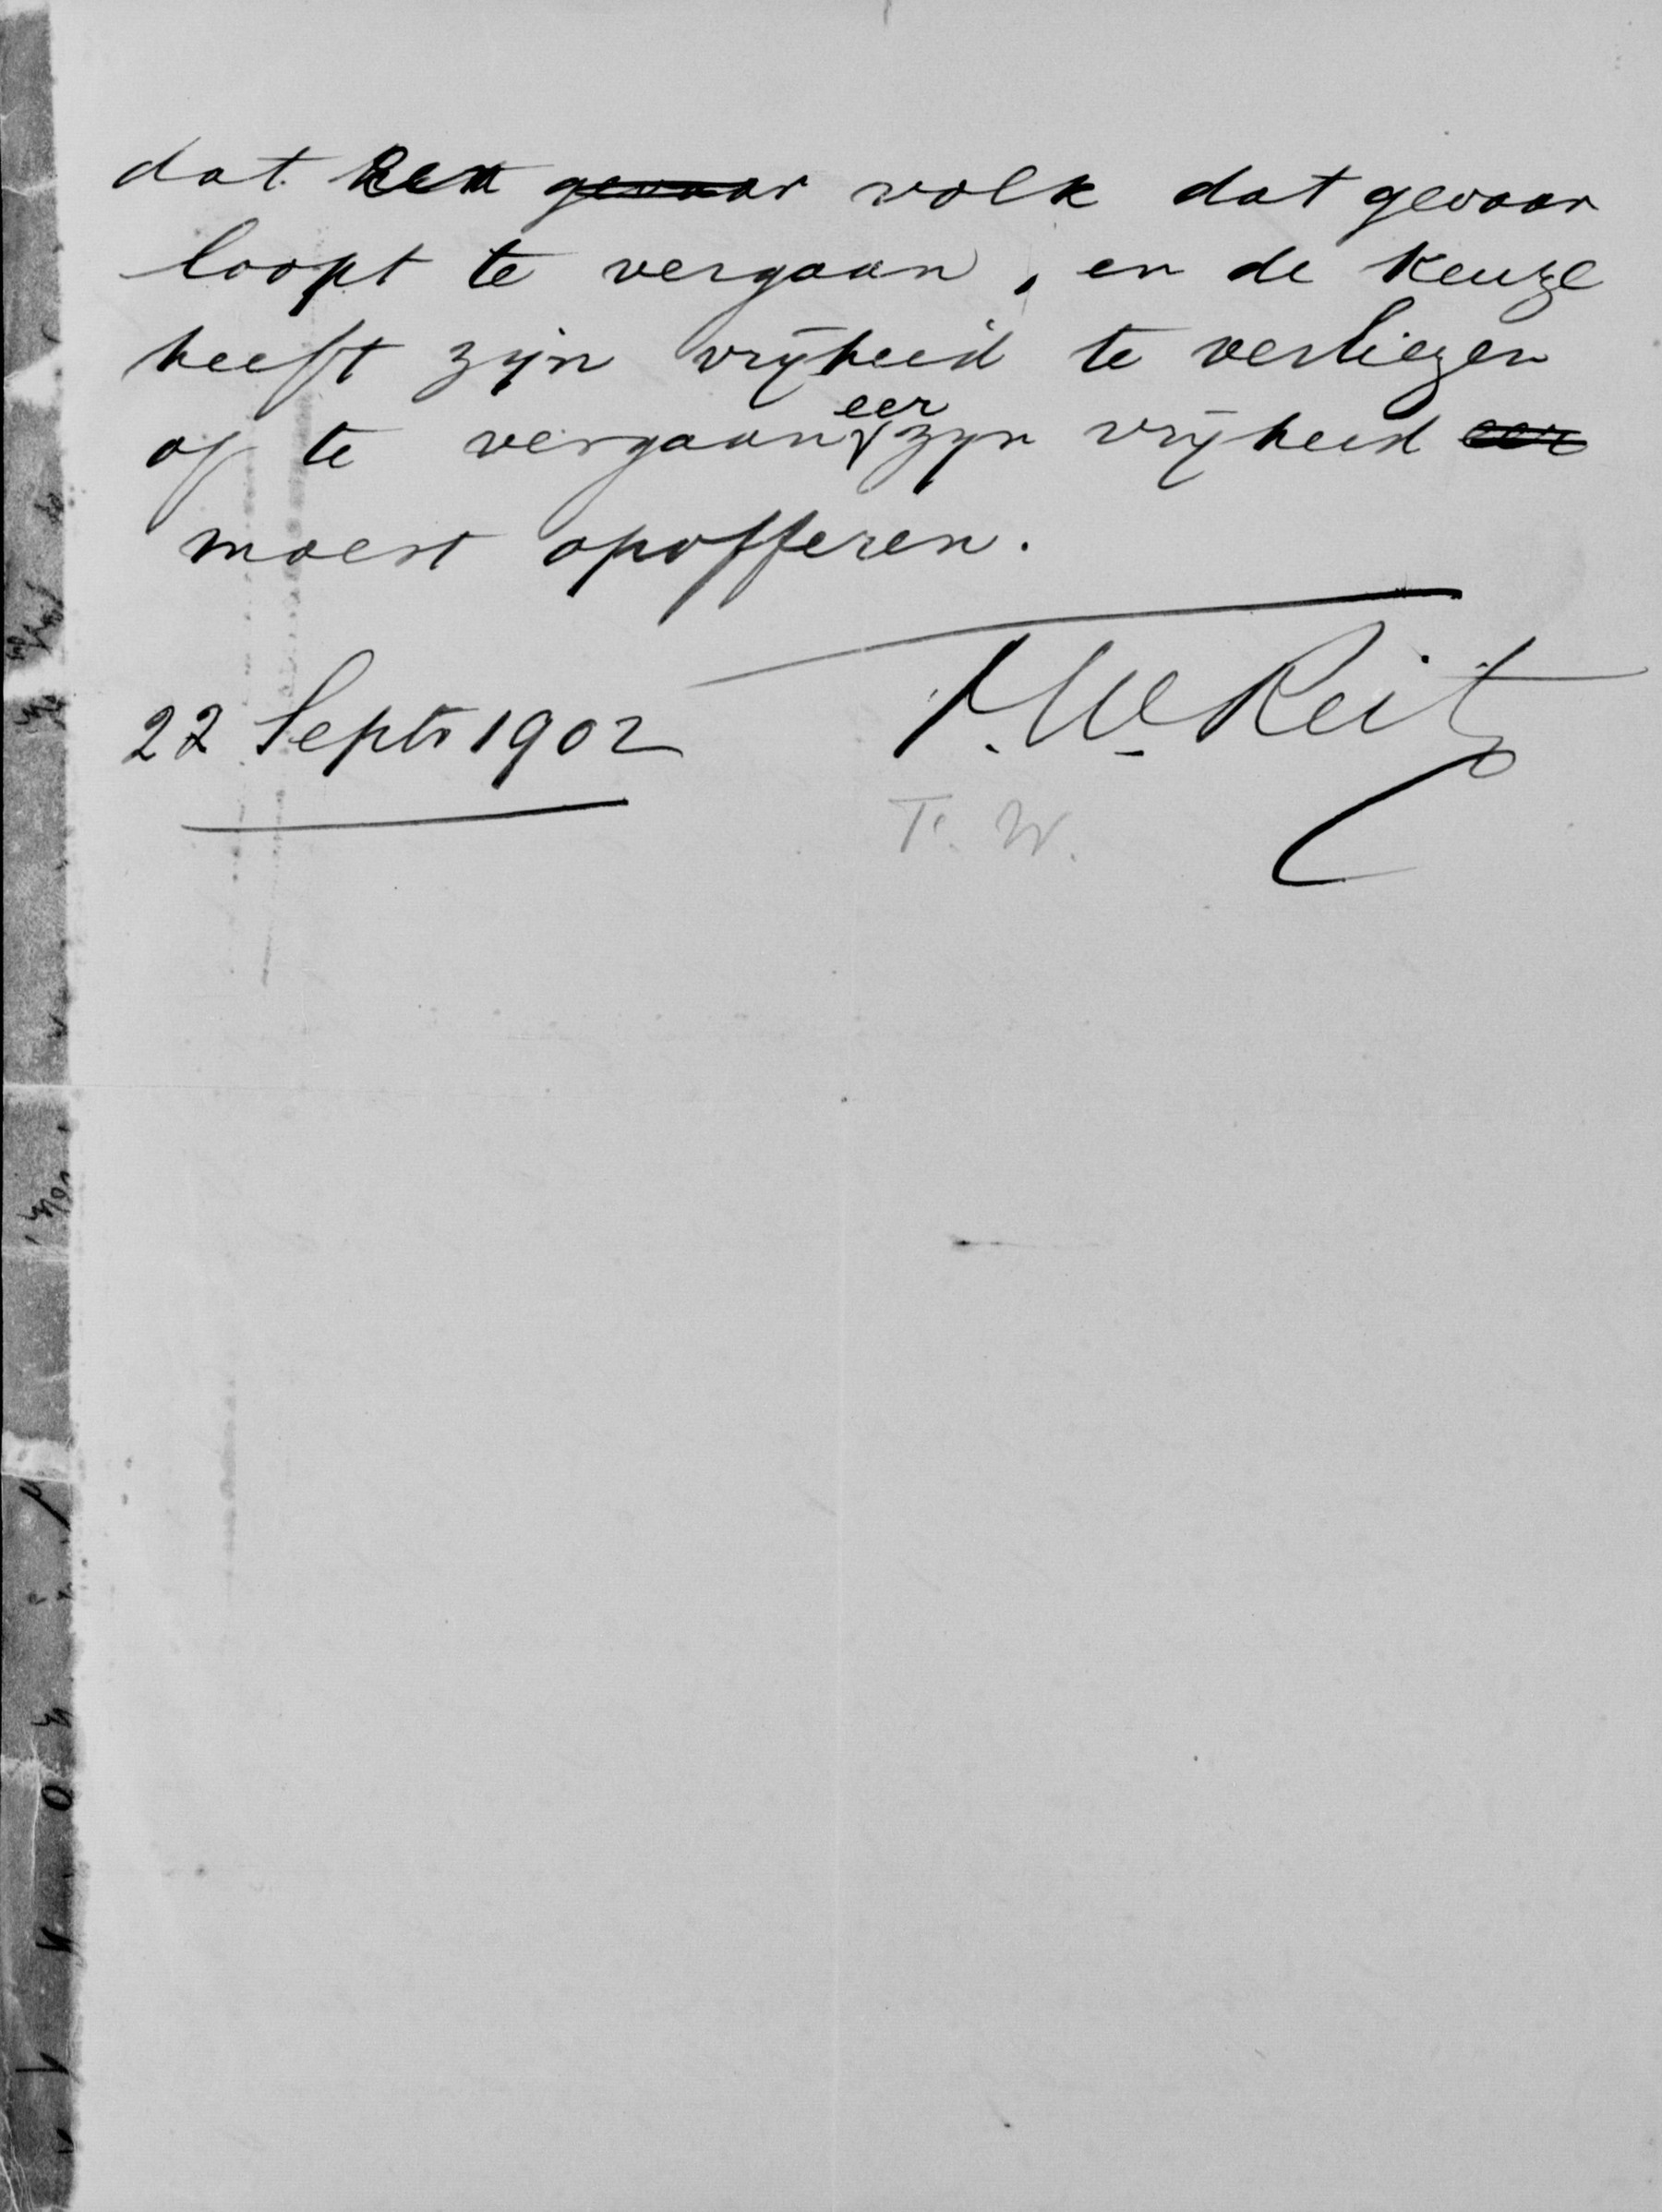 dat een gevaar volk dat gevaar
loopt te vergaan, en de keuze
heeft zijn vrijheid te verliezen
of te vergaan eer zijn vrijheid eer
moest opofferen.
22 Septr 1902
F. W. Reitz
F. W.